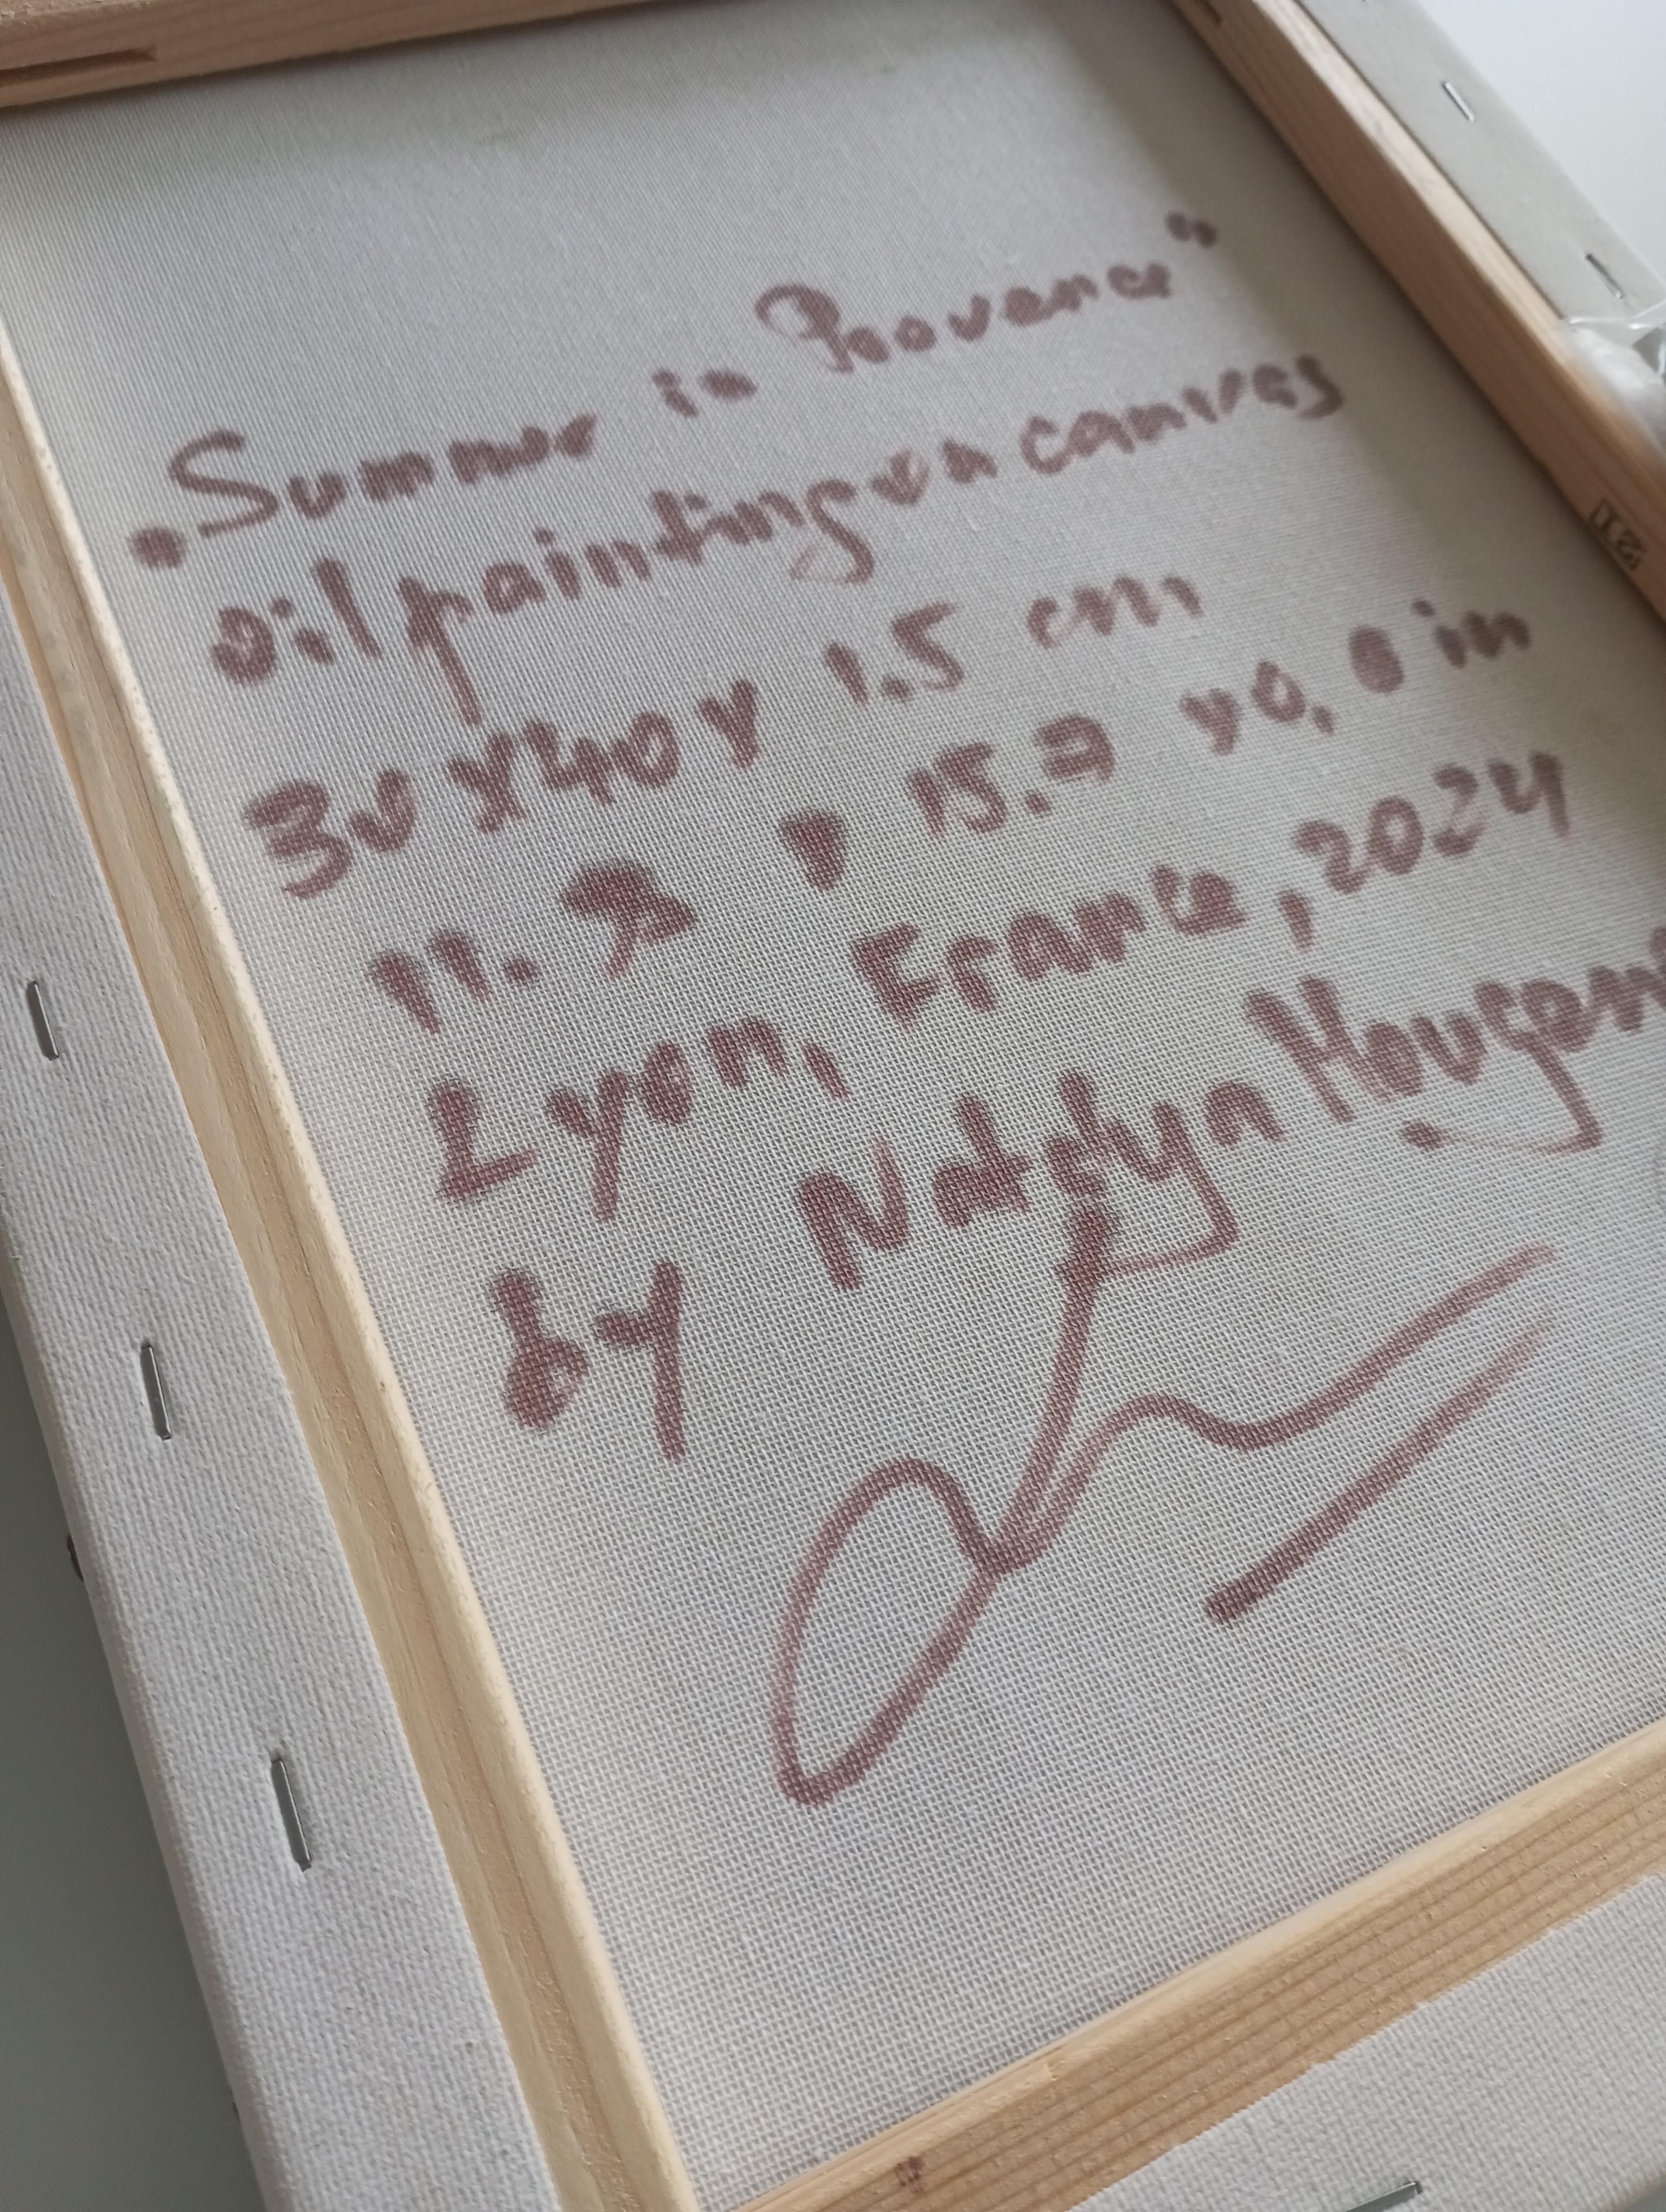 „Summer in Provence"
oil painting on canvas
30 x 40 x 1.5 cm
11. x 15.7 x 0. in
Lyon, France, 2024
by Natalya
21